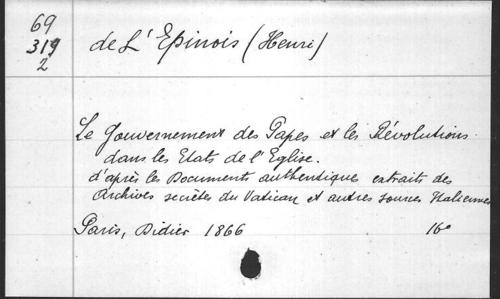 69
319
2
de L'Epinois (Henri)
Le Gouvernement des Papes et les Révolutions
dans les Etats de l'Eglise.
d'après les Documents authentique extraits des
Archives secrètes du Vatican et autres sources Italiennes
Paris, Didier 1866 16°